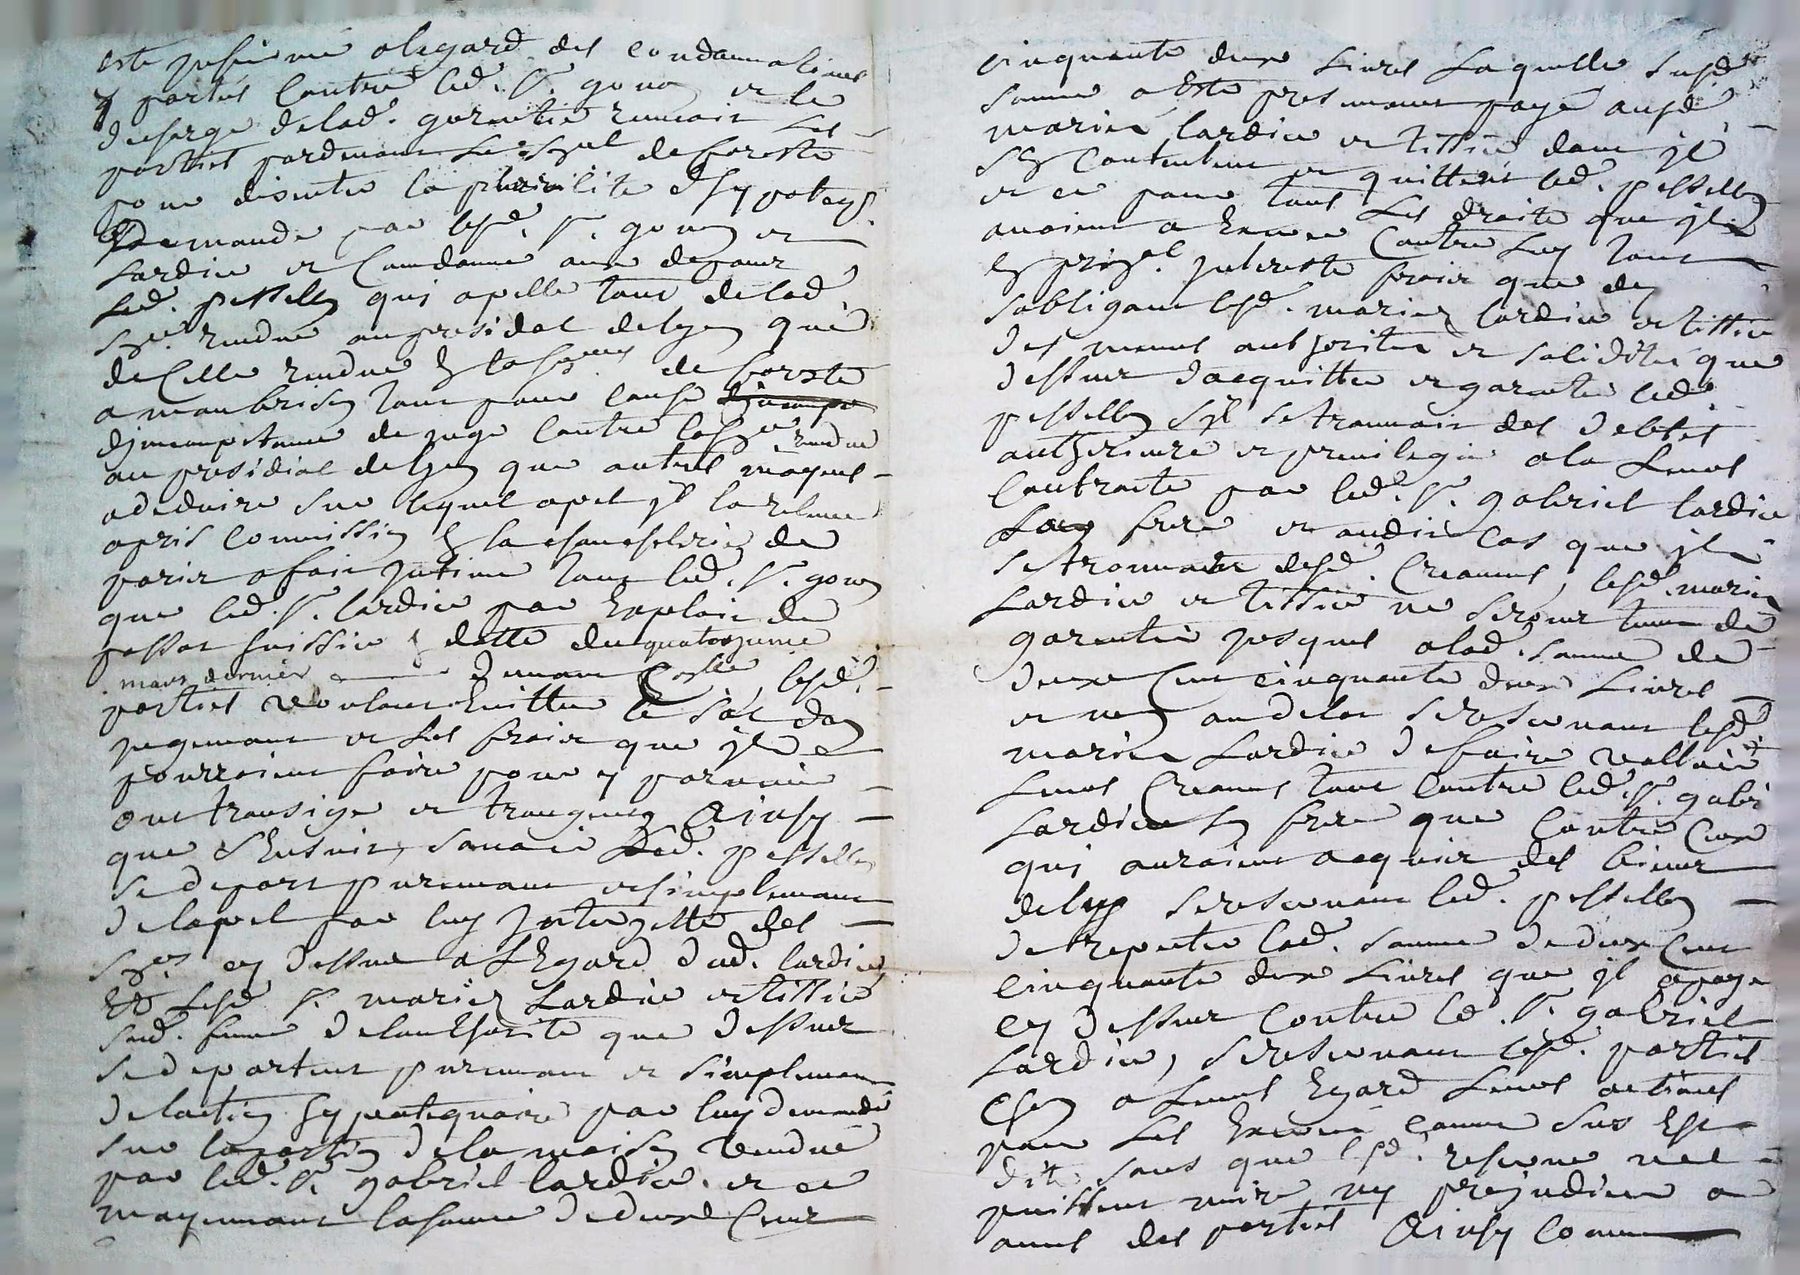 este infirmé a legard des condamnations
y portés contre led. Sr. gonon et le
descharge de lad. garentie renvoié les
parties pardevant le sgnl de foreste
pour discuter la plurialité d'hypoteqs.
demandé par lesd. Sr. gonon et
Lardier et Condamné aux depans
Led. pestellon qui apelle tant de lad.
Sce. rendue au presidal de lyon que
de Celle rendue en la Sen. de foreste
a montbrison tant pour cause
d'jncompetance de juge contre la Sce. rendue
au presidial de lyon que autres moyens
a deduire sur lequel apel jl la relevé
apris Commission en la chanchelerie de
paris a fait jntimer tant led. Sr. gonon
que led. Sr. lardier par Exploit de
passot huissier en datte du quatorzieme
mars dernier
parties voulant Eviter le sor d'un
jugemant et les frais que jls
pourroient faire pour y parvenir
ont transigé et trangent Ainsy
que s'Ensuit, scavoir Led. pestellon
se depart puremant et simplemant
de lapel par luy jnterjetté des
Sces. cy dessus a l'Egard dud. lardier
Et lesd. Sr. marier Lardier et tissier
sad. feme de lauthorité que dessus
se departent puremant et simplemant
de laction hypotequaire par luy demandé
sur la portion de la maison vendue
par led. Sr. gabriel lardier. et ce
moyennant la somme de deux Cent
cinquante deux Livres Laquelle susd.
somme a Esté presentemant payé ausd.
mariés lardier et tissier dont jls
se Contentent et quittent led. pestellon
et ce pour tous Les droits que jls
avoient a Exercer Contre Luy tant
en prinpl. jnterests frais que den
sobligant lesd. mariez lardier et tissier
des mesmes authorités et solidités que
dessus d'acquitter et garentir led.
pestellon s'jl se trouvoit des debtes
anterieure et privilegié a la leurs
Contracté par led. Sr. gabriel lardier
Leur frere et audit Cas que jls
se trouvoit desd. Creances, lesd. mariez
Lardier et tissier ne seront tenu de
garentir jusques a lad. somme de
deux Cent cinquante deux Livres
et non audela se reservant lesd.
mariez Lardier de faire valloir
Leurs Creances tant Contre led. Sr. gabriel
Lardier son frere que Contre Ceux
qui auroient acquis des biens
de luy se reservant led. pestellon
de repeter lad. somme de deux Cent
cinquante deux Livres que jl a payé
cy dessus Contre led. Sr. gabriel
Lardier, se reservant lesd. parties
chun a leurs Egard leurs actions
pour les Exercer comme sus Est
dit sans que lesd. reserves
puissent nuire ny prejudicier a
aucuns des parties Ainsy Convenu